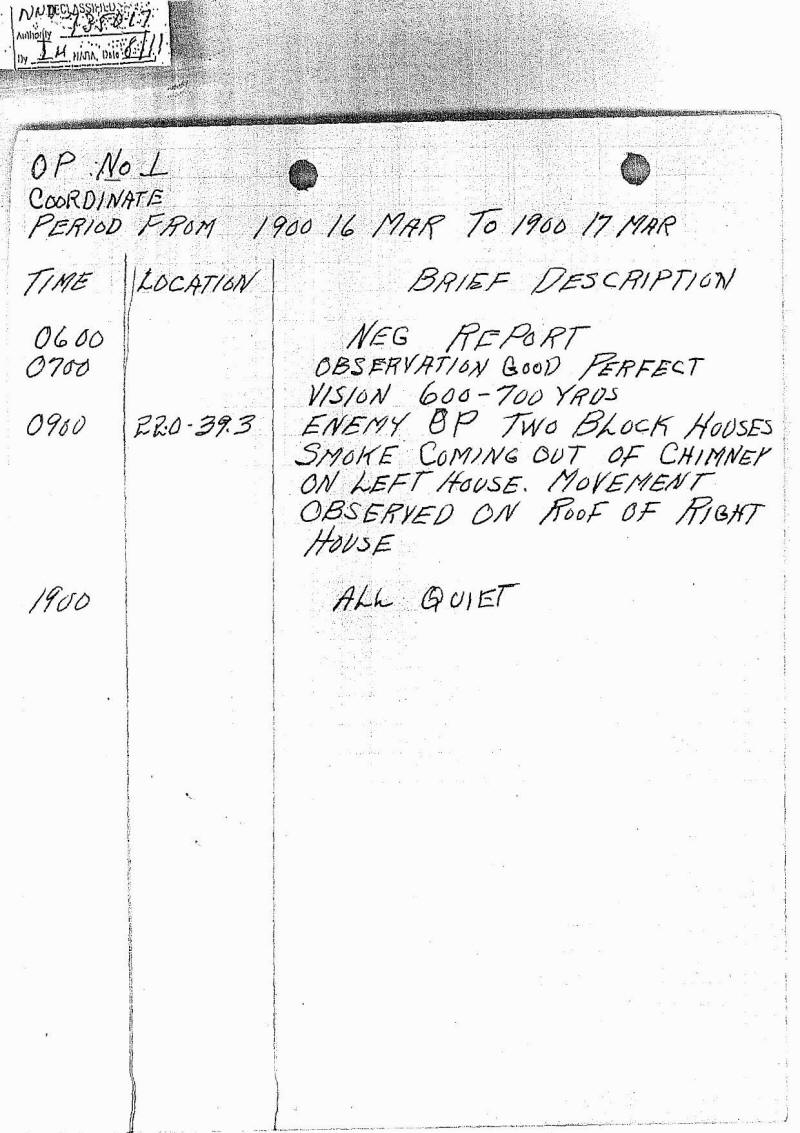 NND DECLASSIFIED
Authority 735017
By IH NARA, Date 8/11
OP No 1
COORDINATE
PERIOD FROM 1900 16 MAR TO 1900 17 MAR
TIME LOCATION BRIEF DESCRIPTION
0600 NEG REPORT
0700 OBSERVATION GOOD PERFECT
VISION 600-700 YRDS
0900 22.0-39.3 ENEMY OP TWO BLOCK HOUSES
SMOKE COMING OUT OF CHIMNEY
ON LEFT HOUSE. MOVEMENT
OBSERVED ON ROOF OF RIGHT
HOUSE
1900 ALL QUIET